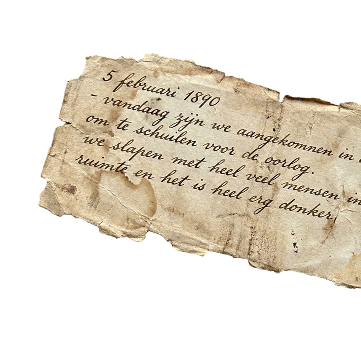 5 februari 1890
- vandaag zijn we aangekomen in
om te schuilen voor de oorlog.
we slapen met heel veel mensen in
ruimte en het is heel erg donker.